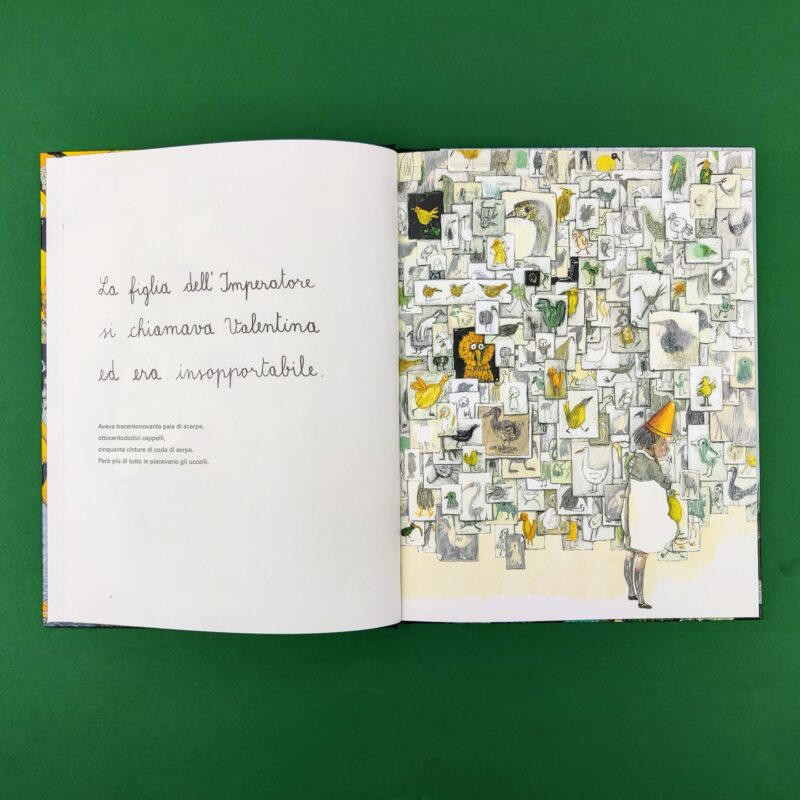 La figlia dell'Imperatore
si chiamava Valentina
ed era insopportabile.
Aveva trecentonovanta paia di scarpe,
ottocentododici cappelli,
cinquanta cinture di coda di serpe.
Però più di tutto le piacevano gli uccelli.